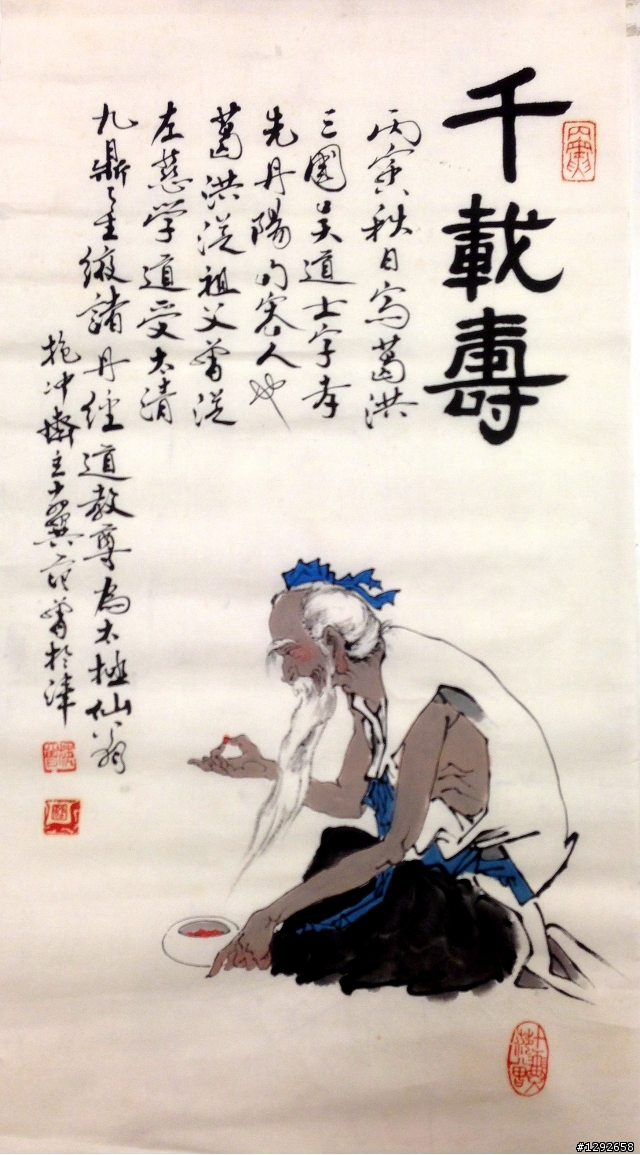 千載壽
丙寅秋日寫葛洪
三國吳道士字孝
先丹陽句容人也
葛洪從祖父嘗從
左慈学道受太清
九鼎金液諸丹經道教尊為太極仙翁
抱冲齋主十翼范曾於津
#1292658